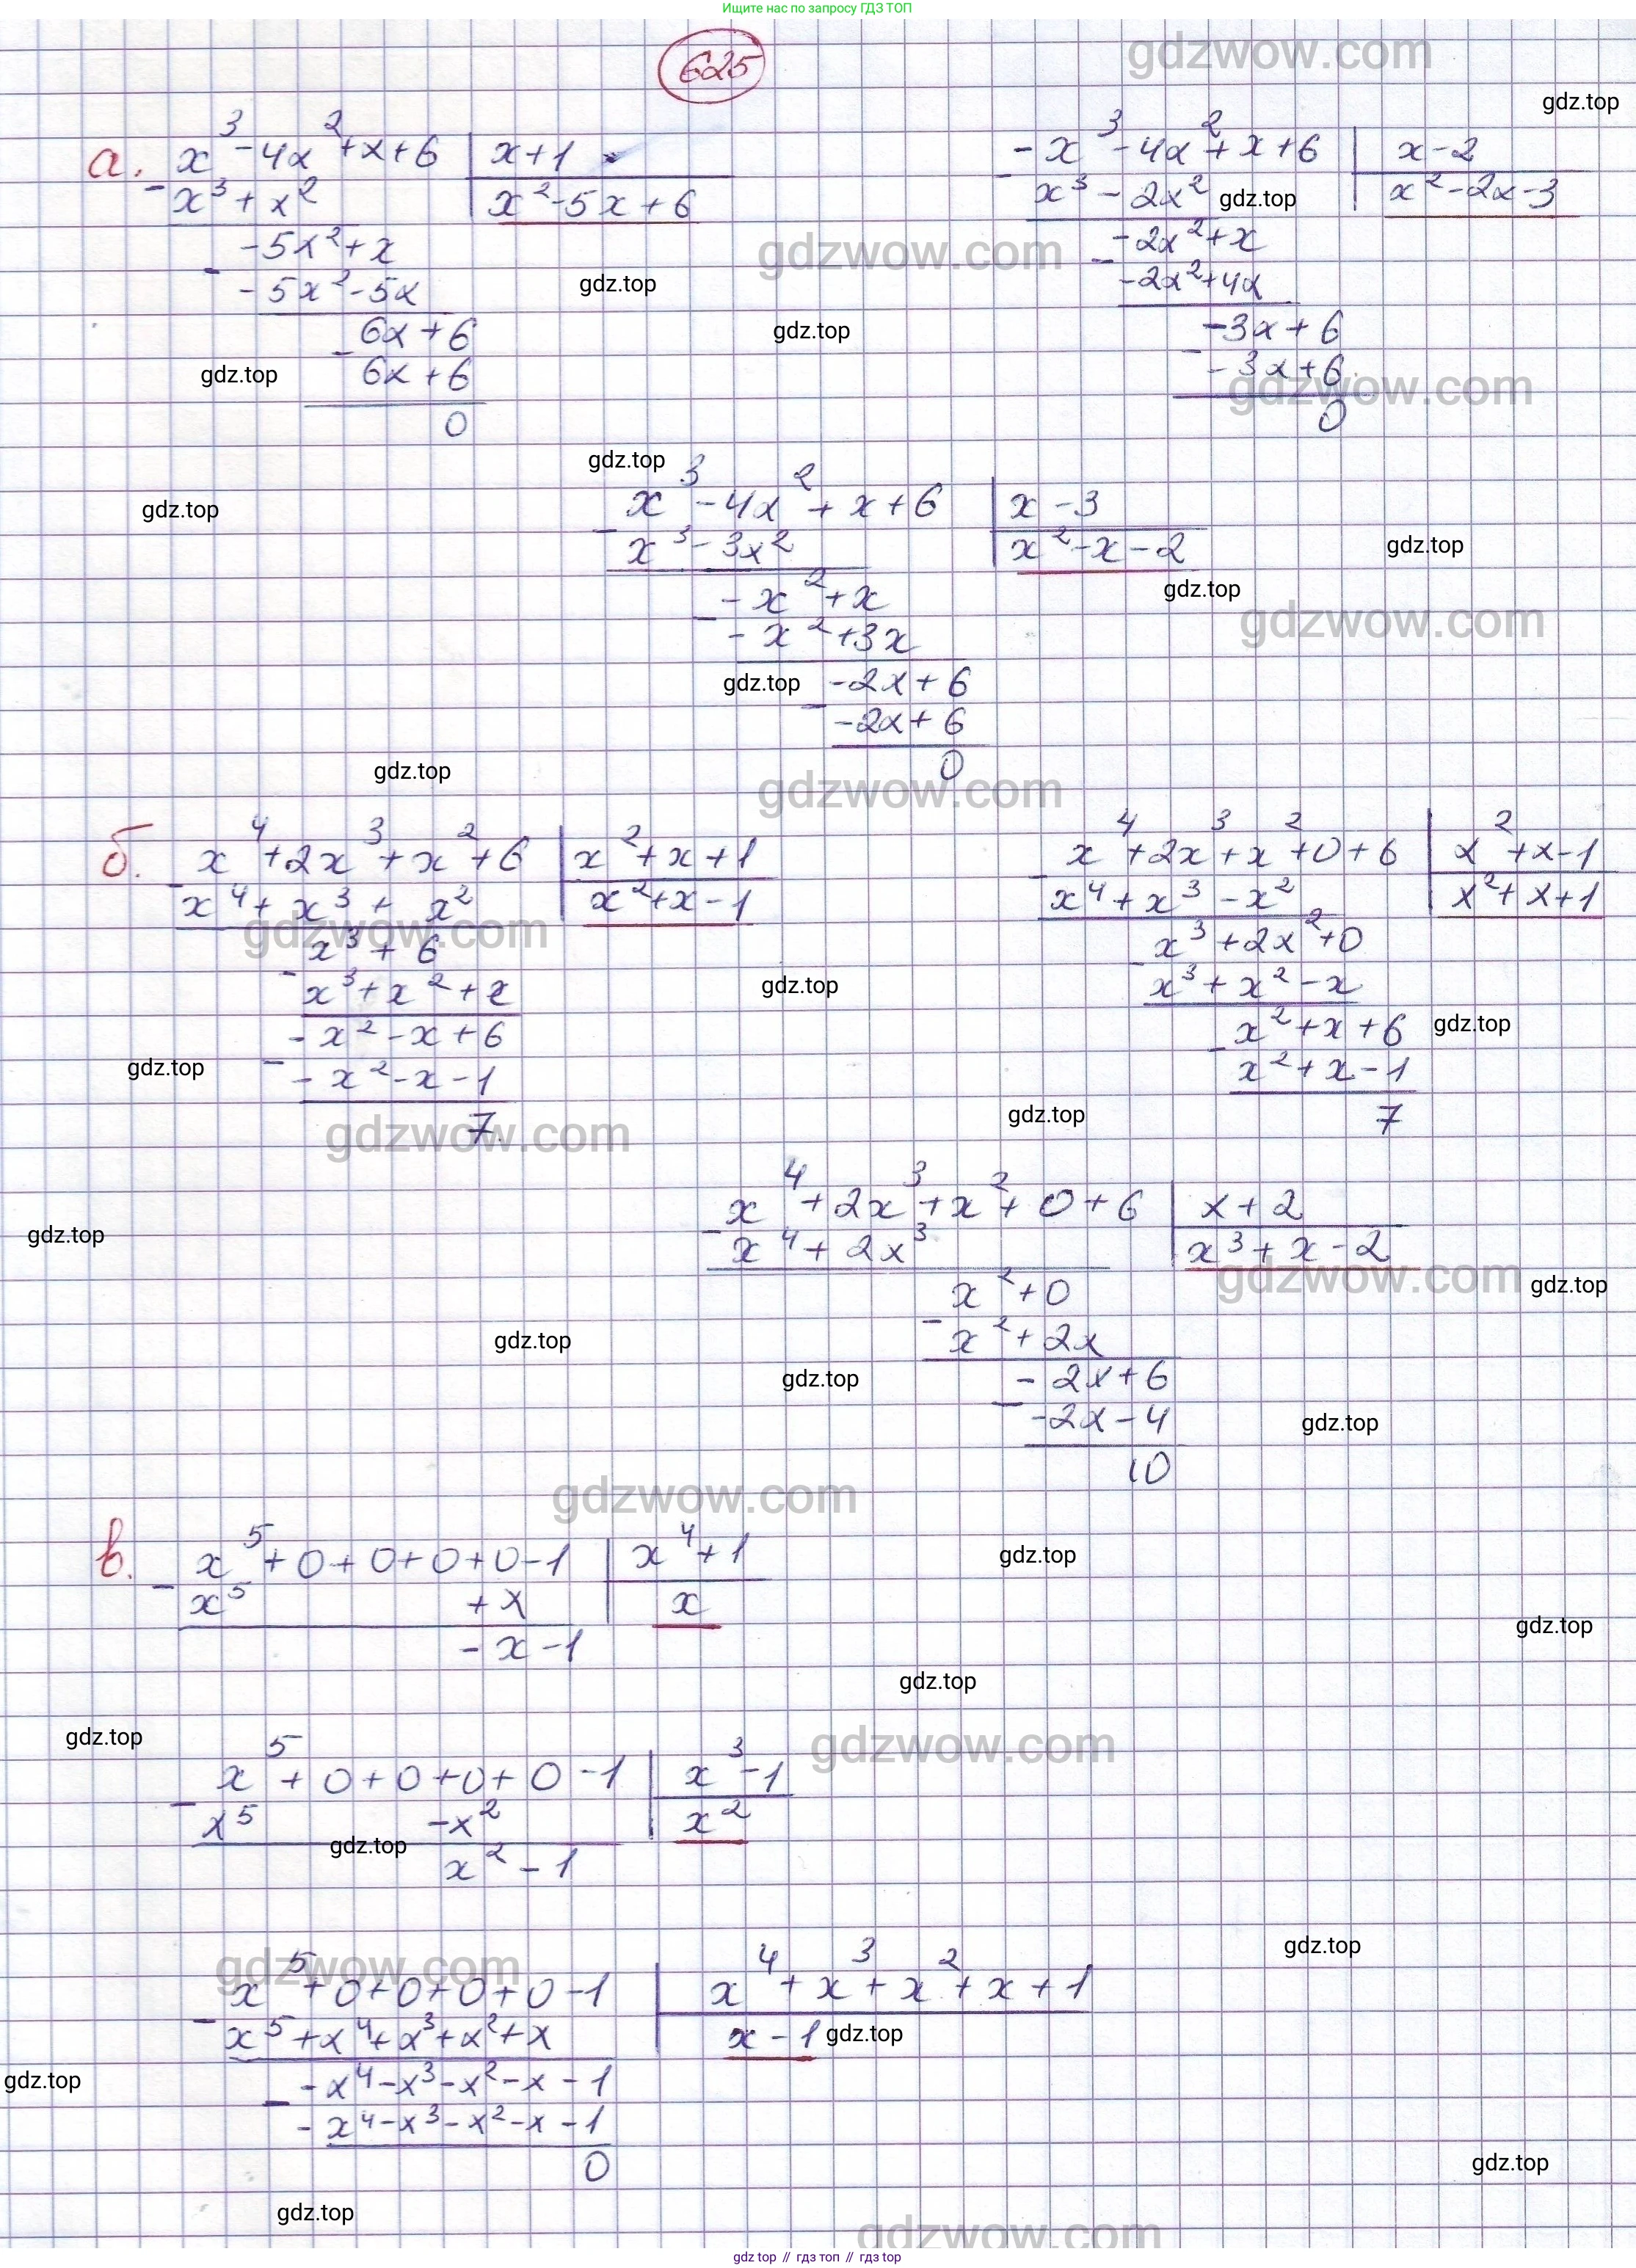 Ищите нас по запросу ГДЗ ТОП
625
а. x³-4x²+x+6 | x+1
- x³+x² | x²-5x+6
-5x²+x
- -5x²-5x
6x+6
- 6x+6
0
- x³-4x²+x+6 | x-2
- x³-2x² | x²-2x-3
-2x²+x
- -2x²+4x
-3x+6
- -3x+6
0
x³-4x²+x+6 | x-3
- x³-3x² | x²-x-2
-x²+x
- -x²+3x
-2x+6
- -2x+6
0
б. x⁴+2x³+x²+6 | x²+x+1
- x⁴+x³+x² | x²+x-1
x³+6
- x³+x²+x
-x²-x+6
- -x²-x-1
7.
x⁴+2x³+x²+0+6 | x²+x-1
- x⁴+x³-x² | x²+x+1
x³+2x²+0
- x³+x²-x
x²+x+6
- x²+x-1
7
x⁴+2x³+x²+0+6 | x+2
- x⁴+2x³ | x³+x-2
x²+0
- x²+2x
-2x+6
- -2x-4
10
в. x⁵+0+0+0+0-1 | x⁴+1
- x⁵ +x | x
-x-1
x⁵+0+0+0+0-1 | x³-1
- x⁵ -x² | x²
x²-1
x⁵+0+0+0+0-1 | x⁴+x³+x²+x+1
- x⁵+x⁴+x³+x²+x | x-1
-x⁴-x³-x²-x-1
- -x⁴-x³-x²-x-1
0
gdz top // гдз топ // гдз top